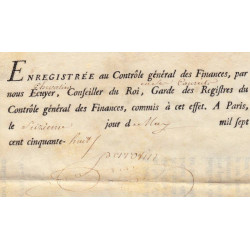 ENREGISTRÉE au Contrôle général des Finances, par
nous Ecuyer, Conseiller du Roi, Garde des Registres du
Contrôle général des Finances, commis à cet effet. A Paris,
le jour de May mil sept
cent cinquante-huit
Perrotin